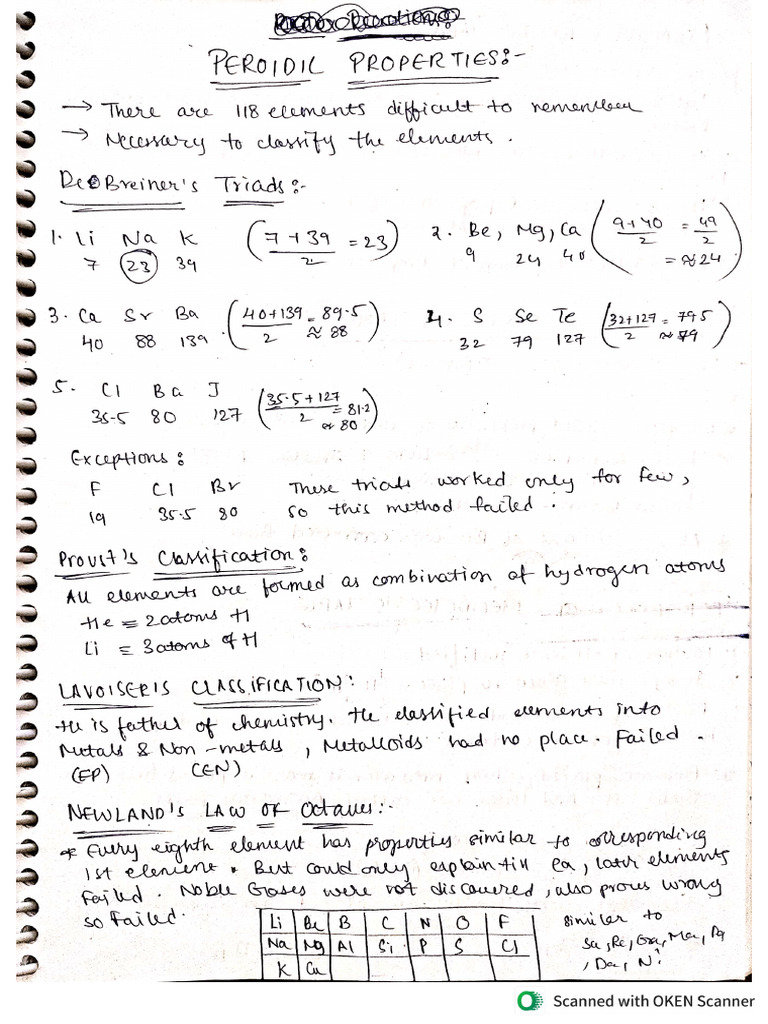 PEROIDIL PROPERTIES:-
→ There are 118 elements difficult to remember
→ Necessary to classify the elements.
DeoBreiner's Triads:-
1. Li Na K (7+39/2 = 23) 2. Be, Mg, Ca (9+40/2 = 49/2 = ≈24)
7 23 39 9 24 40
3. Ca Sr Ba (40+139/2 = 89.5 ≈ 88) 4. S Se Te (32+127/2 = 79.5 ≈ 79)
40 88 139 32 79 127
5. Cl Ba I (35.5+127/2 = 81.2 ≈ 80)
35.5 80 127
Exceptions:
F Cl Br These triads worked only for few,
19 35.5 80 so this method failed.
Proust's Classification:
All elements are formed as combination of hydrogen atoms
He = 2 atoms H
Li = 3 atoms of H
LAVOISERIS CLASSIFICATION:
He is father of chemistry. He classified elements into
Metals & Non-metals, Metalloids had no place. Failed.
(EP) (EN)
NEWLAND'S LAW OF Octaves:-
* Every eighth element has properties similar to corresponding
1st element. But could only explain till Ca, later elements
failed. Noble Gases were not discovered, also proves wrong
so failed.
Li Be B C N O F similar to
Na Mg Al Si P S Cl Sa, Re, Ga, Ma, Pa
K Ca , Da, Ni
Scanned with OKEN Scanner